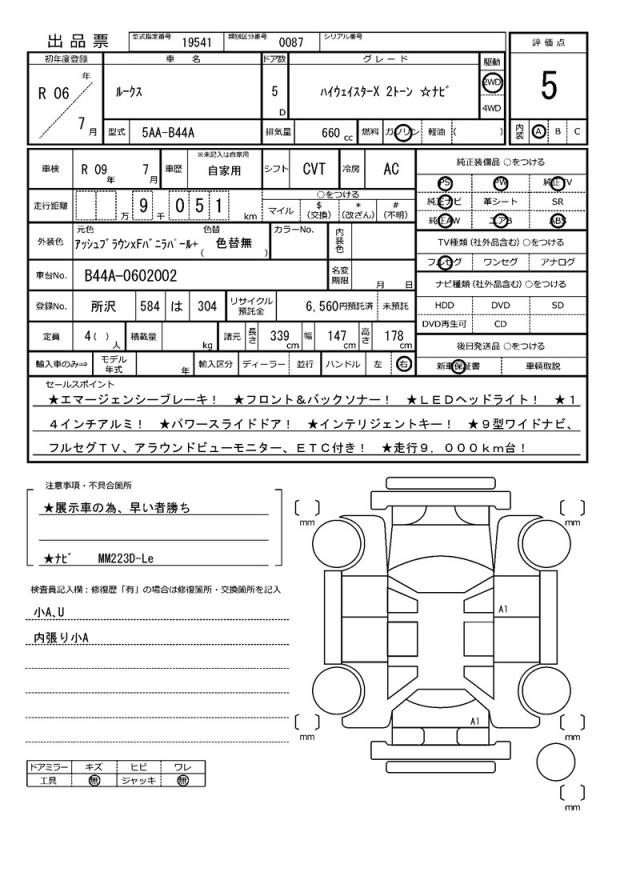 出品票 型式指定番号 19541 類別区分番号 0087 シリアル番号
初年度登録 車名 ドア数 グレード 駆動 評価点
R 06 年 7 月 ルークス 5 D ハイウェイスターX 2トーン ☆ナビ 2WD 4WD 5
型式 5AA-B44A 排気量 660 cc 燃料 ガソリン 軽油 ( ) 内装 A B C
車検 R 09 年 7 月 車歴 ※未記入は自家用 自家用 シフト CVT 冷房 AC 純正装備品 ○をつける
PS PW 純正TV
走行距離 万 9 千 0 5 1 km ○をつける 純正ナビ 革シート SR
マイル $ (交換) * (改ざん) # (不明) 純正AW エアB ABS
外装色 元色 色替 カラーNo. 内装色 TV種類 (社外品含む) ○をつける
アッシュブラウンxFバニラパール+ ( 色替無 ) フルセグ ワンセグ アナログ
車台No. B44A-0602002 名変期限 月 日 ナビ種類 (社外品含む) ○をつける
登録No. 所沢 584 は 304 リサイクル預託金 6,560円預託済 未預託 HDD DVD SD
DVD再生可 CD
定員 4 ( ) 人 積載量 kg 諸元 長さ 339 cm 幅 147 cm 高さ 178 cm 後日発送品 ○をつける
輸入車のみ⇒ モデル年式 年 輸入区分 ディーラー 並行 ハンドル 左 右 新車保証書 車輌取説
セールスポイント
★エマージェンシーブレーキ! ★フロント&バックソナー! ★LEDヘッドライト! ★1
4インチアルミ! ★パワースライドドア! ★インテリジェントキー! ★9型ワイドナビ、
フルセグTV、アラウンドビューモニター、ETC付き! ★走行9,000km台!
注意事項・不具合箇所
★展示車の為、早い者勝ち
★ナビ MM223D-Le
検査員記入欄:修復歴「有」の場合は修復箇所・交換箇所を記入
小A、U
内張り小A
ドアミラー キズ ヒビ ワレ
工具 無 ジャッキ 無
[ ] mm [ ] mm
A1
A1
[ ] mm [ ] mm
[ ] mm